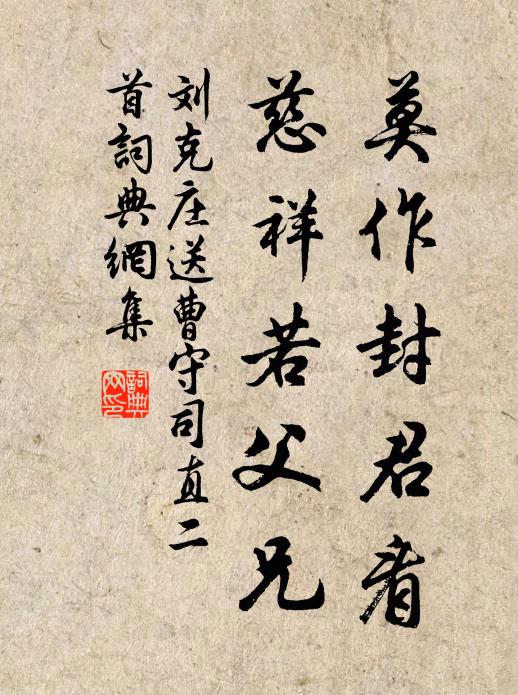 莫作封君看
慈祥若父兄
刘克庄送曹守司直二
首詞典網集
詞典网印